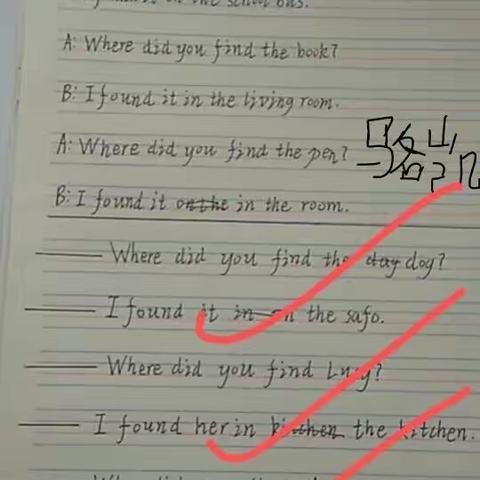 it on the school bus.
A: Where did you find the book?
B: I found it in the living room.
A: Where did you find the pen?
骆凯
B: I found it onthe in the room.
Where did you find the day dog?
I found it in on the safo.
Where did you find Lucy?
I found her in kitchen the kitchen.